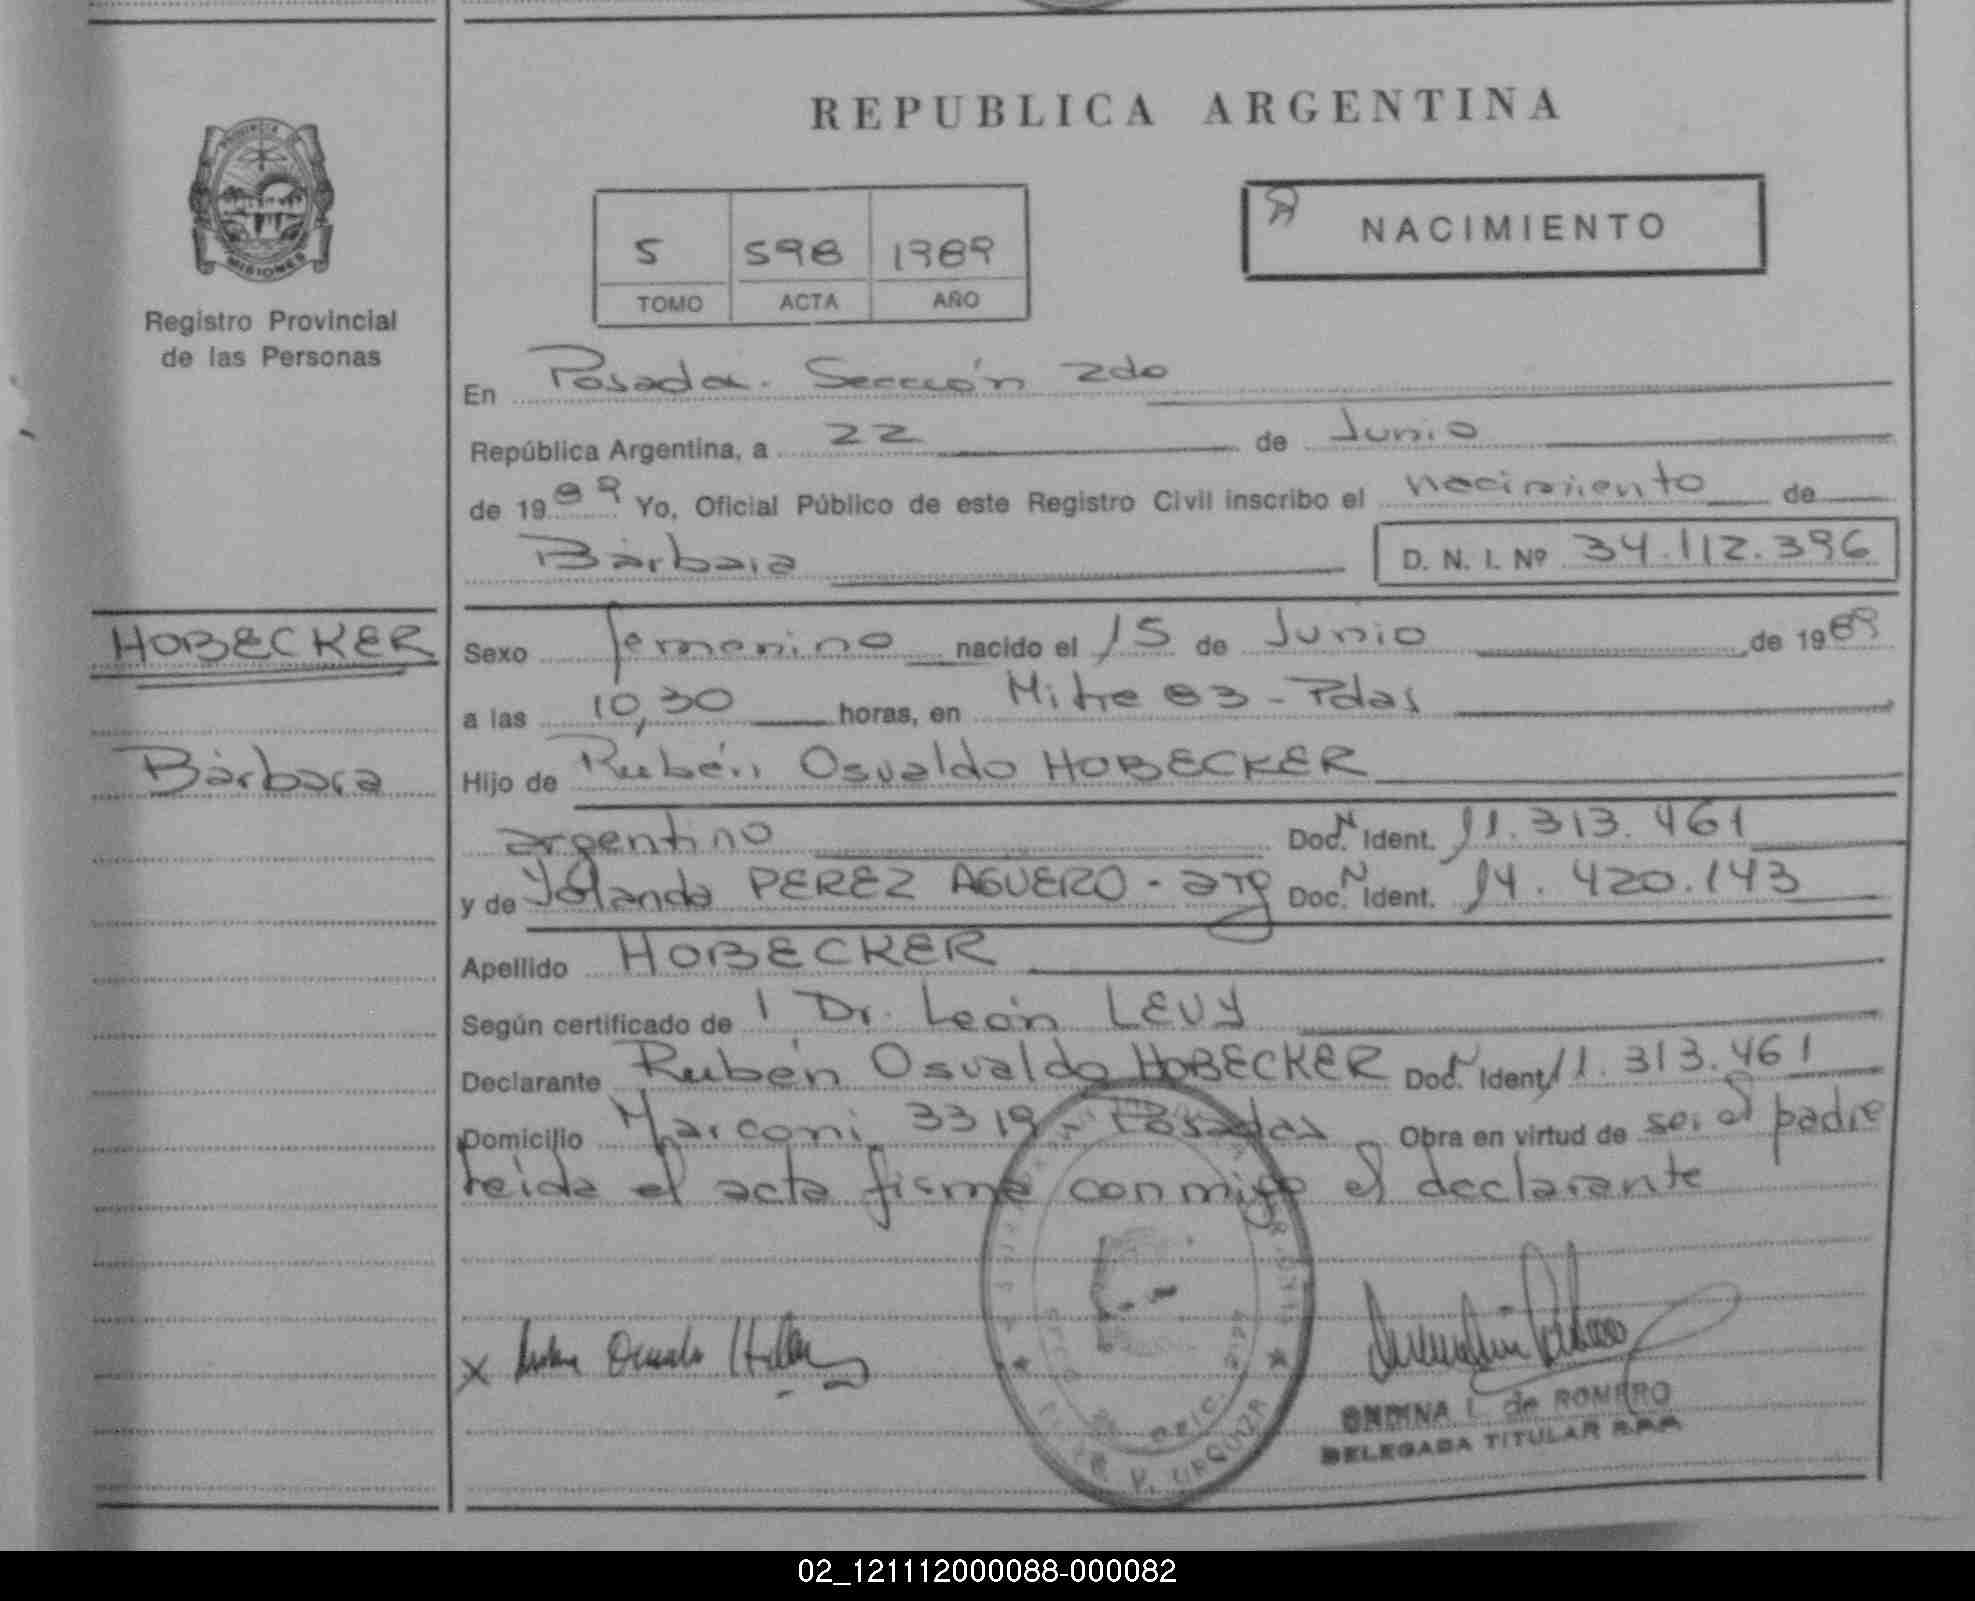 REPUBLICA ARGENTINA
PROVINCIA DE
MISIONES
Registro Provincial
de las Personas
NACIMIENTO
5 598 1989
TOMO ACTA AÑO
En Posadas. Sección 2do
República Argentina, a 22 de Junio
de 1989 Yo, Oficial Público de este Registro Civil inscribo el nacimiento de
Bárbara D. N. I. Nº 34.112.396
HOBECKER
Bárbara
Sexo femenino nacido el 15 de Junio de 1989
a las 10,30 horas, en Mitre 83 - Pdas
Hijo de Rubén Osvaldo HOBECKER
argentino Doc. N Ident. 11.313.461
y de Yolanda PEREZ AGUERO - arg Doc. N Ident. 14.420.143
Apellido HOBECKER
Según certificado de 1 Dr. León LEVY
Declarante Rubén Osvaldo HOBECKER Doc. N Ident. 11.313.461
Domicilio Marconi 3319 Posadas Obra en virtud de ser el padre
leida el acta firma conmigo el declarante
X
URQUIZA
ONDINA L. de ROMERO
DELEGADA TITULAR R.P.P.
02_121112000088-000082